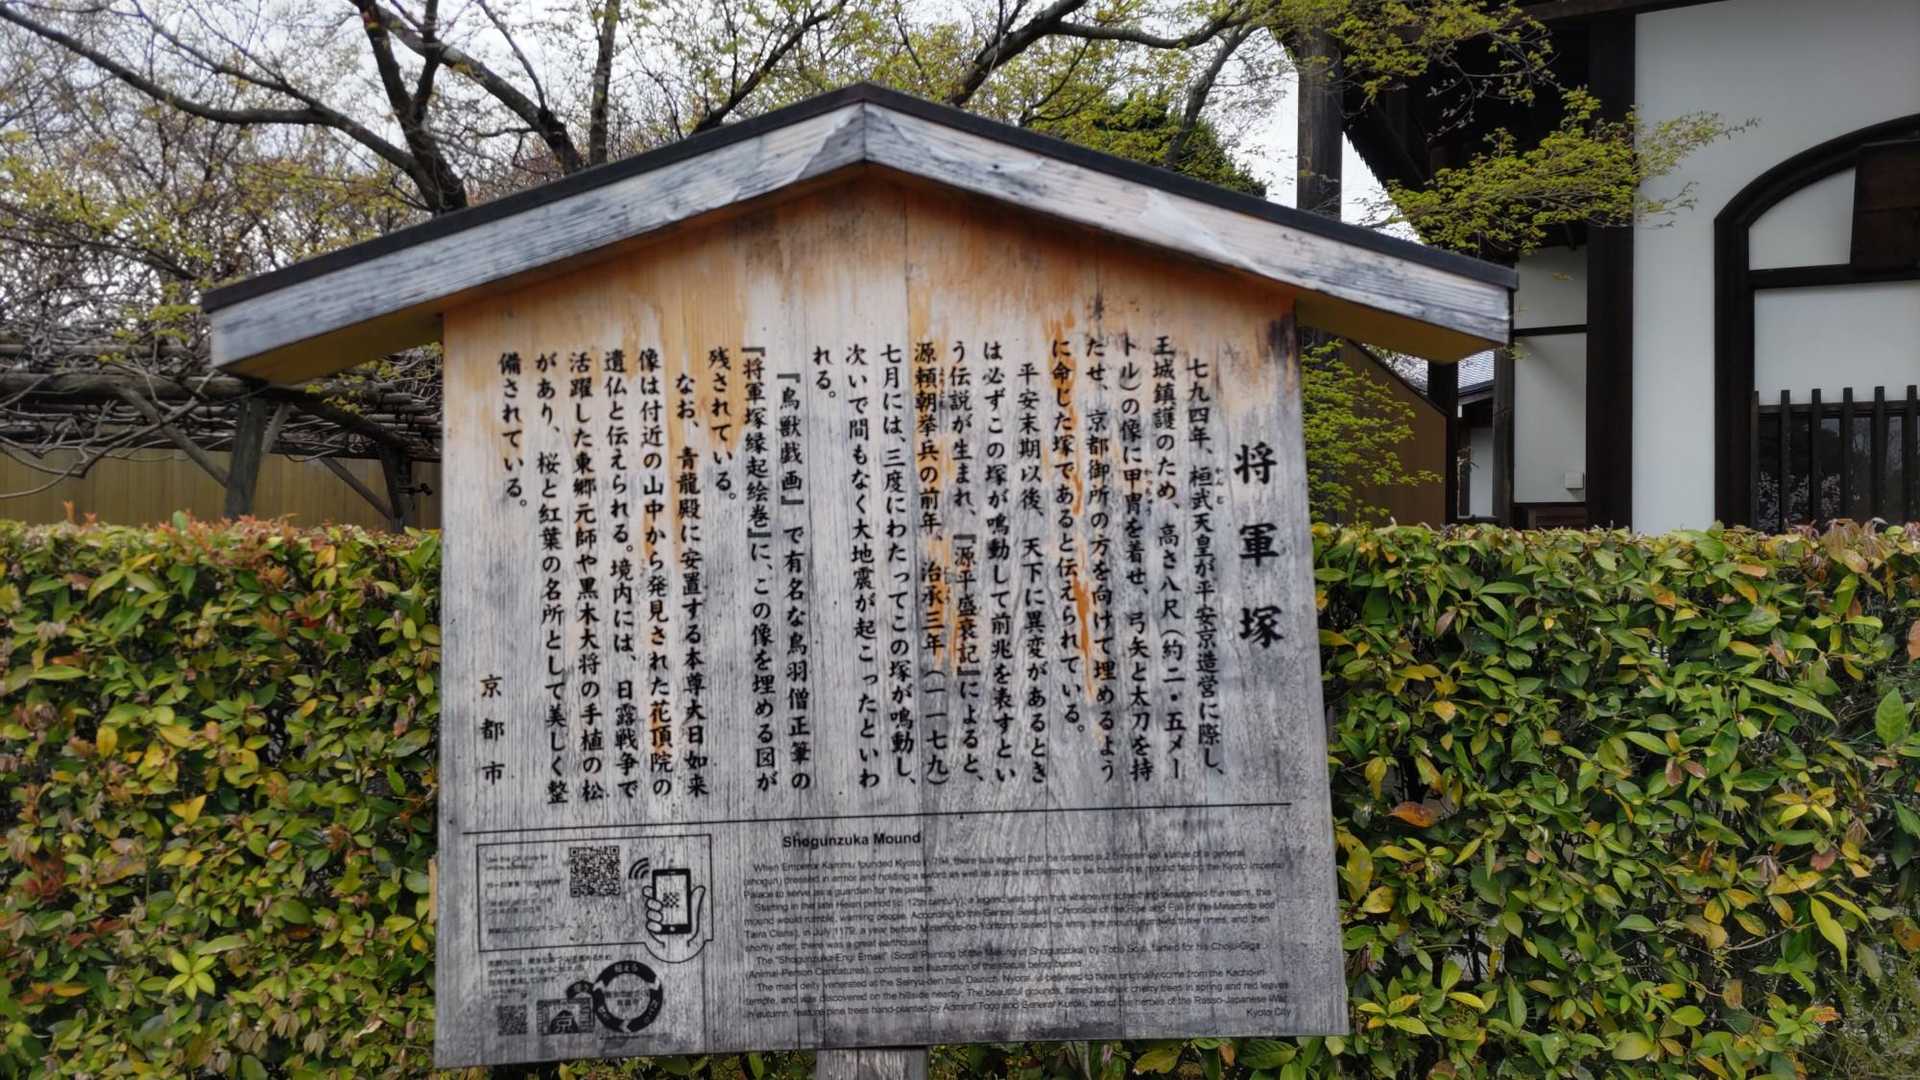 将軍塚
七九四年、桓武天皇が平安京造営に際し、
かんむ
王城鎮護のため、高さ八尺（約二・五メー
トル）の像に甲冑を着せ、弓矢と太刀を持
かっちゅう
たせ、京都御所の方を向けて埋めるよう
に命じた塚であると伝えられている。
平安末期以後、天下に異変があるとき
は必ずこの塚が鳴動して前兆を表すとい
う伝説が生まれ、『源平盛衰記』によると、
源頼朝挙兵の前年、治承三年（一一七九）
七月には、三度にわたってこの塚が鳴動し、
次いで間もなく大地震が起こったといわ
れる。
『鳥獣戯画』で有名な鳥羽僧正筆の
『将軍塚縁起絵巻』に、この像を埋める図が
残されている。
なお、青龍殿に安置する本尊大日如来
像は付近の山中から発見された花頂院の
遺仏と伝えられる。境内には、日露戦争で
活躍した東郷元師や黒木大将の手植の松
があり、桜と紅葉の名所として美しく整
備されている。
京都市
Shogunzuka Mound
When Emperor Kammu founded Kyoto in 794, there is a legend that he ordered a 2.5 meter tall statue of a general
(shogun) dressed in armor and holding a sword as well as a bow and arrows to be buried in a mound facing the Kyoto Imperial
Palace to serve as a guardian for the palace.
Starting in the late Heian period (c. 12th century), a legend was born that whenever something threatened the realm, this
mound would rumble, warning people. According to the Genpei Seisuiki (Chronicle of the Rise and Fall of the Minamoto and
Taira Clans), in July 1179, a year before Minamoto-no-Yoritomo raised his army, the mound rumbled three times, and then
shortly after, there was a great earthquake.
The "Shogunzuka-Engi Emaki" (Scroll Painting of the Making of Shogunzuka) by Toba Sojo, famed for his Choju-Giga
(Animal-Person Caricatures), contains an illustration of the statue being buried.
The main deity venerated at the Seiryu-den hall, Dainichi Nyorai, is believed to have originally come from the Kacho-in
temple, and was discovered on the hillside nearby. The beautiful grounds, famed for their cherry trees in spring and red leaves
in autumn, feature pine trees hand-planted by Admiral Togo and General Kuroki, two of the heroes of the Russo-Japanese War.
Kyoto City